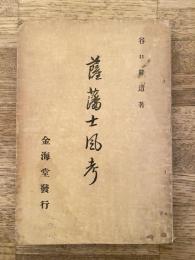 谷口 道 著
薩藩士風考
金海堂發行